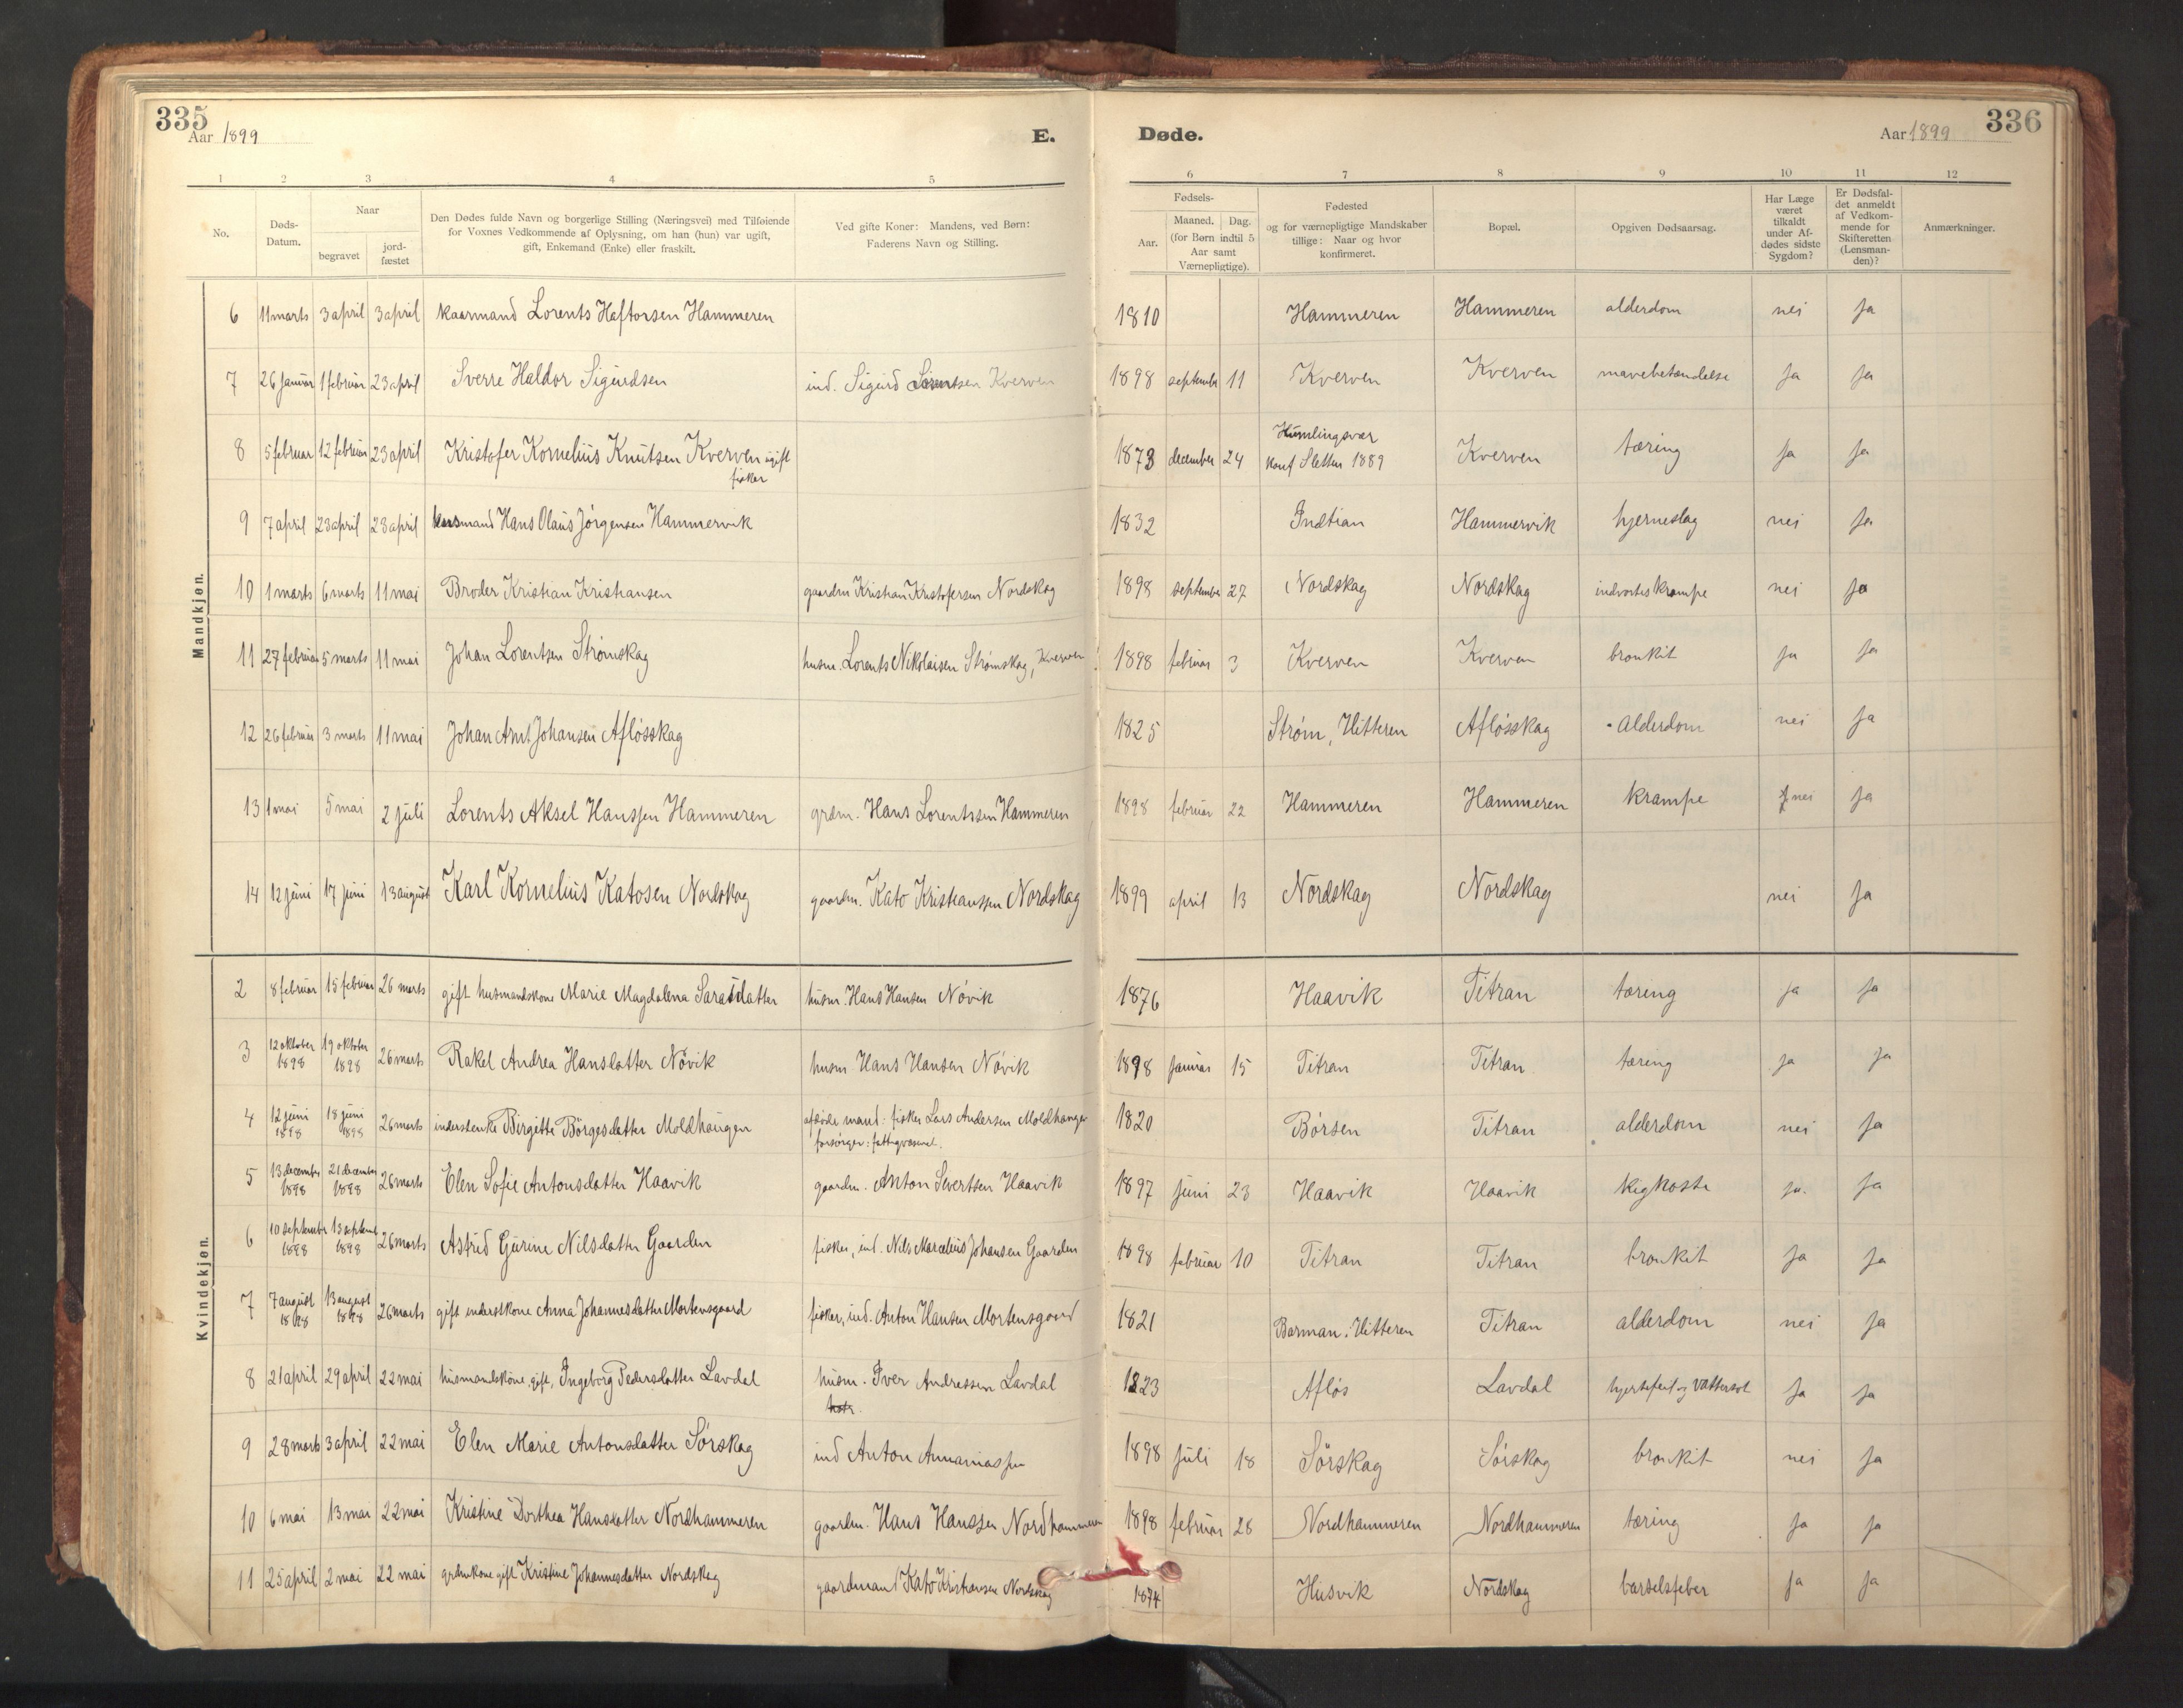 335
Aar 1899
E.
Døde.
Aar 1899
336
1 2 3 4 5 6 7 8 9 10 11 12
No.
Døds-Datum.
Naar
begravet
jord-fæstet
Den Dødes fulde Navn og borgerlige Stilling (Næringsvei) med Tilføiende
for Voxnes Vedkommende af Oplysning, om han (hun) var ugift,
gift, Enkemand (Enke) eller fraskilt.
Ved gifte Koner: Mandens, ved Børn:
Faderens Navn og Stilling.
Fødsels-
Aar.
Maaned. Dag.
(for Børn indtil 5
Aar samt
Værnepligtige).
Fødested
og for værnepligtige Mandskaber
tillige: Naar og hvor
konfirmeret.
Bopæl.
Opgiven Dødsaarsag.
Har Læge
været
tilkaldt
under Af-
dødes sidste
Sygdom?
Er Dødsfal-
det anmeldt
af Vedkom-
mende for
Skifteretten
(Lensman-
den)?
Anmærkninger.
Mandkjøn.
6 11 marts 3 april 3 april kaarmand Lorents Haftorsen Hammeren 1810 Hammeren Hammeren alderdom nei ja
7 26 januar 1 februar 23 april Sverre Haldor Sigurdsen ind. Sigurd Kverven 1898 september 11 Kverven Kverven mavebetændelse ja ja
8 5 februar 12 februar 23 april Kristofer Kornelius Knutsen Kverven ugift
fisker
1873 december 24 Humlingsvær
konf Sletten 1889 Kverven tæring ja ja
9 7 april 23 april 23 april Hans Olaus Jørgensen Hammervik 1832 Indtian Hammervik hjerneslag nei ja
10 1 marts 6 marts 11 mai Broder Kristian Kristiansen gaardm Kristian Kristofersen Nordskag 1898 september 27 Nordskag Nordskag indvortes krampe nei ja
11 27 februar 5 marts 11 mai Johan Lorentsen Strømskag husm. Lorents Nikolaisen Strømskag, Kverven 1898 februar 3 Kverven Kverven bronkit ja ja
12 26 februar 3 marts 11 mai Johan Arnt Johansen Afløsskag 1825 Strøm, Hitteren Afløsskag Alderdom nei ja
13 1 mai 5 mai 2 juli Lorents Aksel Hanssen Hammeren grdm. Hans Lorentssen Hammeren 1898 februar 22 Hammeren Hammeren krampe nei ja
14 12 juni 17 juni 13 august Karl Kornelius Katosen Nordskag gaardm. Kato Kristianssen Nordskag 1899 april 13 Nordskag Nordskag nei ja
Kvindekjøn.
2 8 februar 15 februar 26 marts gift husmandskone Marie Magdalena husm. Hans Hansen Nøvik 1876 Haavik Titran tæring ja ja
3 12 oktober 1898 19 oktober 1898 26 marts Rakel Andrea Hansdatter Nøvik husm. Hans Hansen Nøvik 1898 januar 15 Titran Titran tæring ja ja
4 12 juni 1898 18 juni 1898 26 marts inderstenke Birgitte Børgesdatter Moldhaugen afdøde mand: fisker Lars Andersen Moldhaugen
forsørger: fattigvæsenet.
1820 Børsen Titran alderdom nei ja
5 13 december 1898 21 december 1898 26 marts Elen Sofie Antonsdatter Haavik gaardm. Anton Sivertsen Haavik 1897 juni 23 Haavik Haavik kighoste ja. ja
6 10 september 1898 13 september 1898 26 marts Astrid Gurine Nilsdatter Gaarden fisker, ind. Nils Marcelius Johansen Gaarden 1898 februar 10 Titran Titran bronkit ja ja
7 7 august 1898 13 august 1898 26 marts gift inderstkone Anna Johannesdatter Mortensgaard fisker, ind. Anton Hansen Mortensgaard 1821 Barman, Hitteren Titran alderdom nei ja
8 21 april 29 april 22 mai husmandskone, gift, Ingeborg Pedersdatter Lavdal husm. Iver Andressen Lavdal 1823 Afløs Lavdal hjertefeil og vattersot ja ja
9 28 marts 3 april 22 mai Elen Marie Antonsdatter Sørskag ind Anton Annaniassen 1898 juli 18 Sørskag Sørskag bronkit nei ja
10 6 mai 13 mai 22 mai Kristine Dorthea Hansdatter Nordhammeren gaardm. Hans Hanssen Nordhammeren 1898 februar 28 Nordhammeren Nordhammeren tæring ja ja
11 25 april 2 mai 22 mai grdmkone gift Kristine Johannesdatter Nordskag gaardmand Kato Kristiansen Nordskag 1874 Husvik Nordskag barselsfeber ja ja